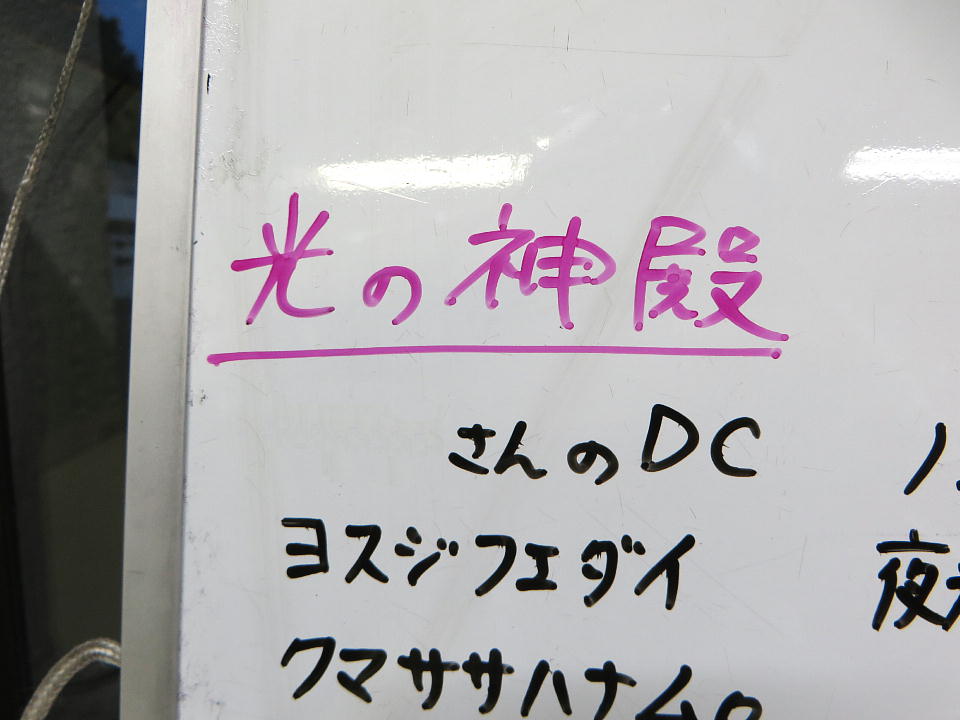 光の神殿
さんのDC
ヨスジフエダイ
クマササハナムロ
夜